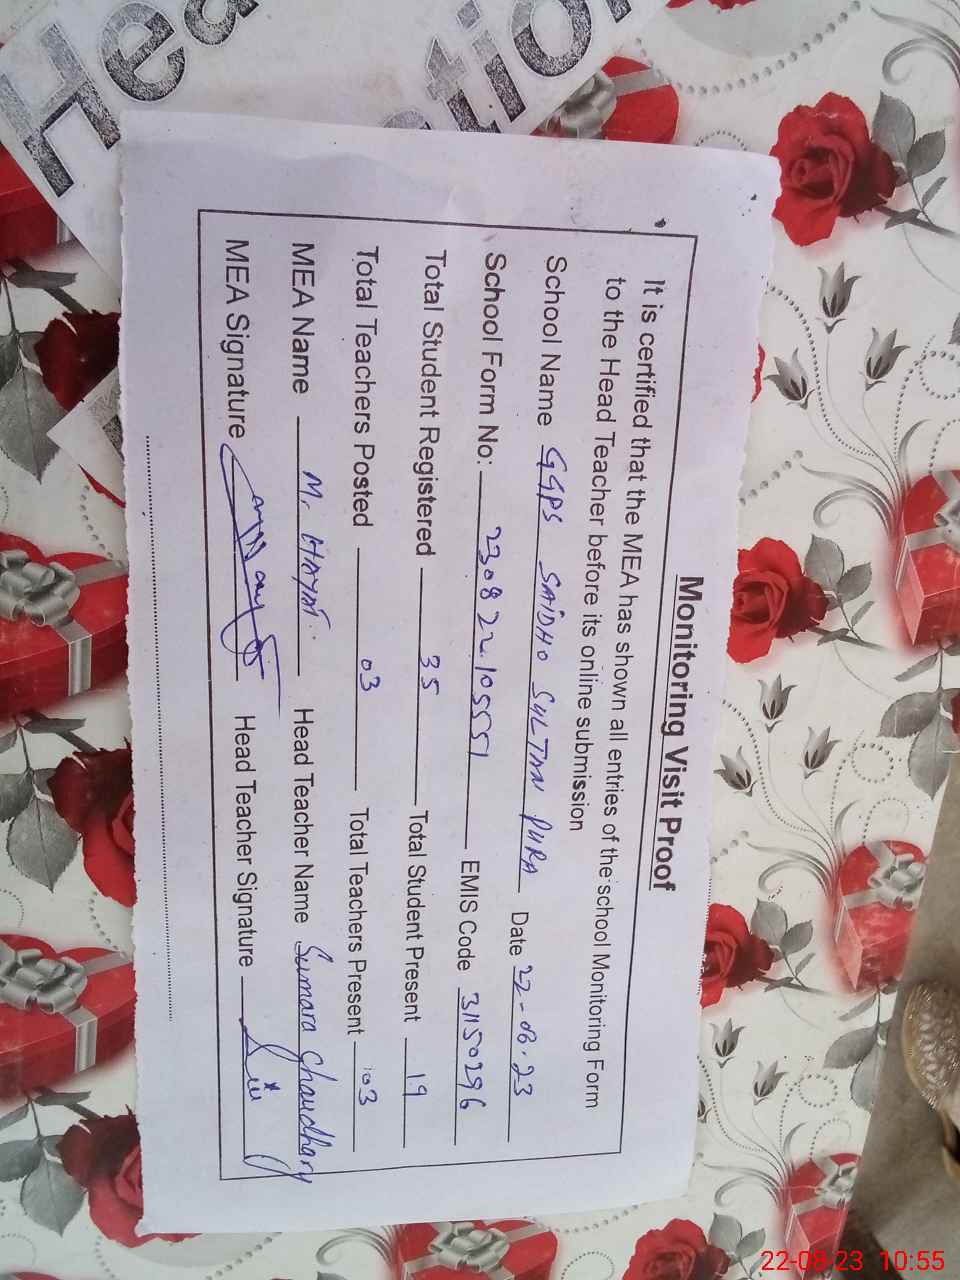 Monitoring Visit Proof
It is certified that the MEA has shown all entries of the school Monitoring Form
to the Head Teacher before its online submission
School Name GGPS SAIDHO SULTAN PURA Date 22-08-23
School Form No: 230822.105551 EMIS Code 31150296
Total Student Registered 35 Total Student Present 19
Total Teachers Posted 03 Total Teachers Present 03
MEA Name M. HAYAT. Head Teacher Name Sumara Chaudhary
MEA Signature Head Teacher Signature
22-08-23 10:55